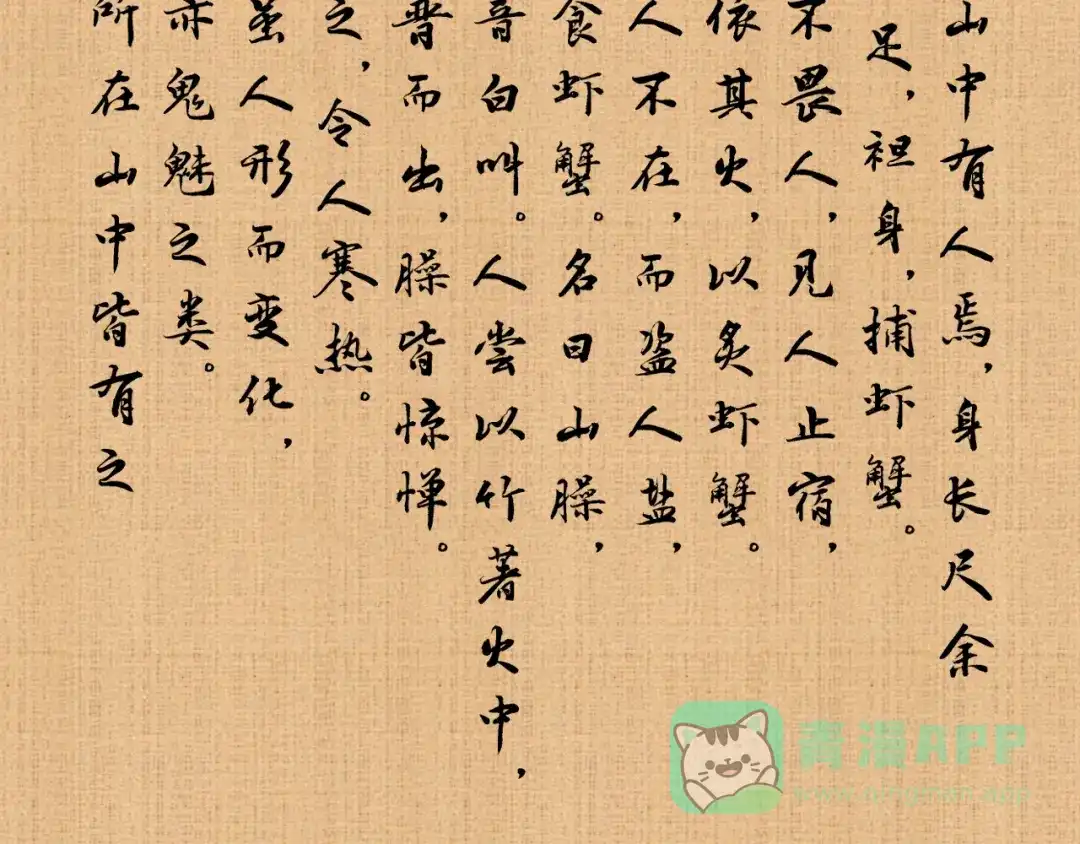 山中有人焉，身长尺余
足，袒身，捕虾蟹。
不畏人，见人止宿，
依其火，以炙虾蟹。
人不在，而盗人盐，
食虾蟹。名曰山臊，
音自叫。人尝以竹著火中，
而出，臊皆惊惮。
之，令人寒热。
虽人形而变化，
亦鬼魅之类。
所在山中皆有之
青满APP